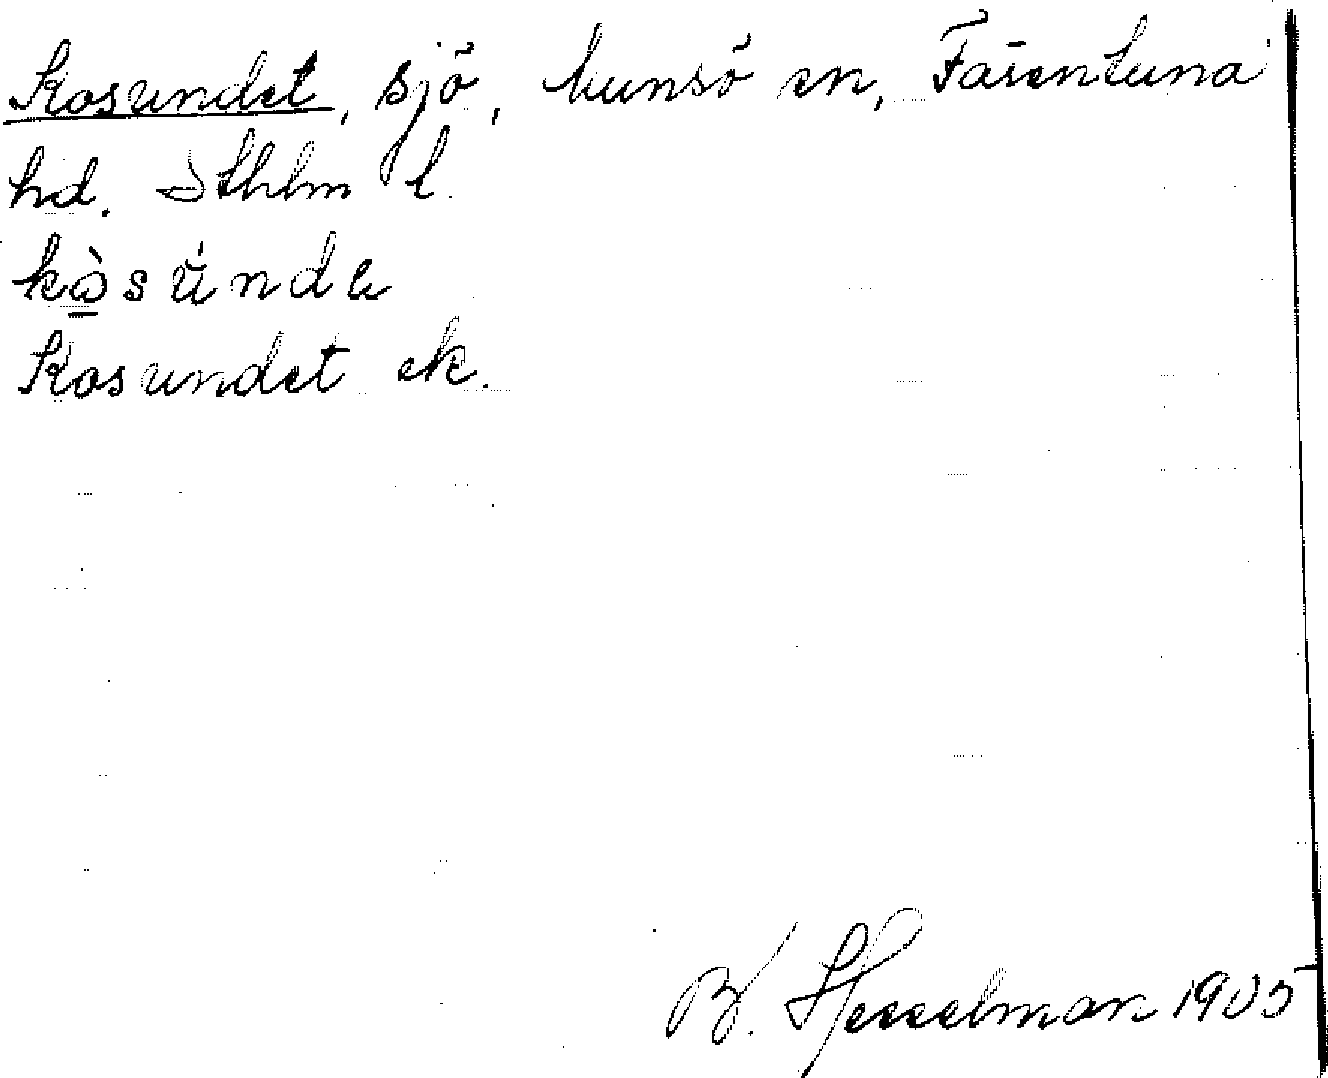 Kosundet, sjö, Munsö sn, Färentuna
hd. Sthlm l.
kòsúnda
Kosundet ek.
B. Hesselman 1905